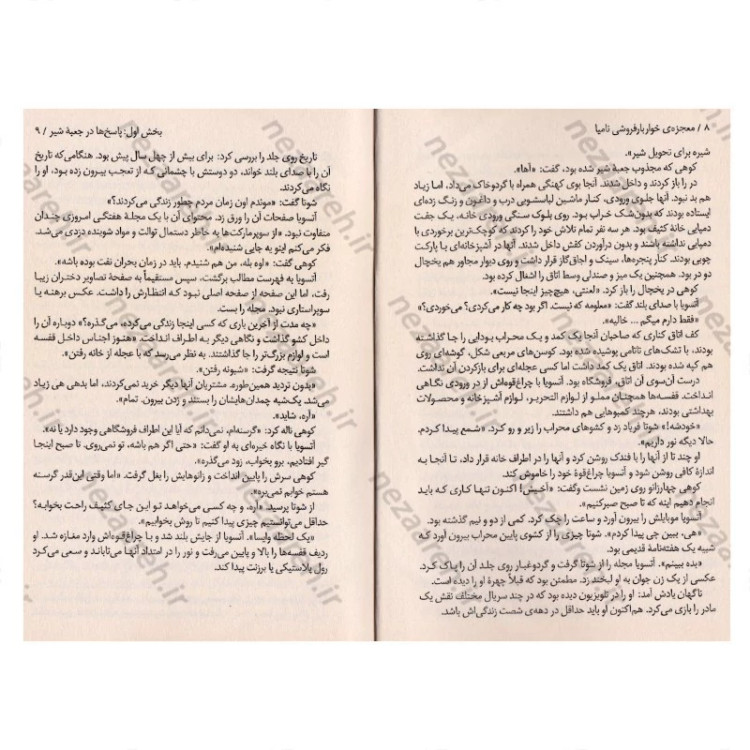 ۸ / معجزه‌ی خواربارفروشی نامیا
شیره برای تحویل شیر».
کوهی که مجذوب جعبهٔ شیر شده بود، گفت: «آها».
در را باز کردند و داخل شدند. آنجا بوی کهنگی همراه با گردوخاک می‌داد، اما زیاد
هم بد نبود. آنها جلوی ورودی، کنار ماشین لباسشویی درب و داغون و زنگ زده‌ای
ایستاده بودند که بدون‌شک خراب بود. روی بلوک سنگی ورودی خانه، یک جفت
دمپایی خانهٔ کثیف بود. هر سه نفر تمام تلاش خود را کردند که کوچک‌ترین برخوردی با
دمپایی نداشته باشند و بدون درآوردن کفش داخل شدند. آنها در آشپزخانه‌ای با پارکت
چوبی بودند. کنار پنجره‌ها، سینک و اجاق‌گاز قرار داشت و روی دیوار مجاور هم یخچال
دو در بود. همچنین یک میز و صندلی وسط اتاق را اشغال کرده بود.
کوهی در یخچال را باز کرد. «لعنتی، هیچ‌چیز اینجا نیست».
آتسویا با صدای بلند گفت: «معلومه که نیست. اگر بود چه کار می‌کردی؟ می‌خوردی؟»
«فقط دارم میگم ... خالیه».
کف اتاق کناری که صاحبان آنجا یک کمد و یک محراب بودایی را جا گذاشته
بودند، با تشک‌های تاتامی پوشیده شده بود. کوسن‌های مربعی شکل، گوشه‌ای روی
هم کپه شده بودند. اتاق یک کمد داشت اما کسی عجله‌ای برای بازکردن آن نداشت.
درست آن‌سوی آن اتاق، فروشگاه بود. آتسویا با چراغ‌قوه‌اش از در ورودی نگاهی
انداخت. قفسه‌ها همچنان مملو از لوازم التحریر، لوازم آشپزخانه و محصولات
بهداشتی بودند، هرچند کمبودهایی هم داشتند.
«خودشه!» شوتا فریاد زد و کشوهای محراب را زیر و رو کرد. «شمع پیدا کردم.
حالا دیگه نور داریم».
او چند تا از آنها را با فندک روشن کرد و آنها را در اطراف خانه قرار داد، تا آنجا به
اندازهٔ کافی روشن شود و آتسویا چراغ‌قوهٔ خود را خاموش کند.
کوهی چهارزانو روی زمین نشست وگفت: «آخیش! اکنون تنها کاری که باید
انجام دهیم اینه که تا صبح صبرکنیم».
آتسویا موبایلش را بیرون آورد و ساعت را چک کرد. کمی از دو و نیم گذشته بود.
«هی، ببین چی پیدا کردم». شوتا چیزی را از کشوی پایین محراب بیرون آورد که
شبیه یک هفته‌نامهٔ قدیمی بود.
«بده ببینم». آتسویا مجله را از شوتا گرفت و گردوغبار روی جلد آن را پاک کرد.
عکسی از یک زن جوان به او لبخند زد. مطمئن بود که قبلاً چهرهٔ او را دیده است.
ناگهان یادش آمد: او را در تلویزیون دیده بود که در چند سریال مختلف نقش یک
مادر را بازی می‌کرد. هم‌اکنون او باید حداقل در دهه‌ی شصت زندگی‌اش باشد.
بخش اول: پاسخ‌ها در جعبهٔ شیر / ۹
تاریخ روی جلد را بررسی کرد: برای بیش از چهل سال پیش بود. هنگامی‌که تاریخ
آن را با صدای بلند خواند، دو دوستش با چشمانی که از تعجب بیرون زده بود، او را
نگاه می‌کردند.
شوتا گفت: «موندم اون زمان مردم چطور زندگی می‌کردند؟»
آتسویا صفحات آن را ورق زد. محتوای آن با یک مجلهٔ هفتگی امروزی چندان
متفاوت نبود. «از سوپرمارکت‌ها به خاطر دستمال توالت و مواد شوینده دزدی می‌شد.
فکر می‌کنم اینو یه جایی شنیده‌ام».
کوهی گفت: «اوه بله، من هم شنیدم. باید در زمان بحران نفت بوده باشه».
آتسویا به فهرست مطالب برگشت، سپس مستقیماً به صفحهٔ تصاویر دختران زیبا
رفت، اما این صفحه از صفحه اصلی نبود کـه انتظارش را داشت. عکس برهنه یا
سوپراستاری نبود. مجله را بست.
«چه مدت از آخرین باری که کسی اینجا زندگی می‌کرده، می‌گذره؟» دوباره آن را
داخل کشو گذاشت و نگاهی دیگر به اطراف انداخت. «هنوز اجناس داخل قفسه
است و لوازم بزرگ‌تر را جا گذاشتند. به نظر می‌رسد که با عجله از خانه رفتن».
شوتا نتیجه گرفت: «شبونه رفتن».
«بدون تردید همین‌طوره. مشتریان آنها دیگر خرید نمی‌کردند، اما بدهی زیاد
می‌شد. یک‌شبه چمدان‌هایشان را بستند و زدن بیرون. تمام».
«آره، شاید».
کوهی ناله کرد: «گرسنه‌ام. نمی‌دانم که آیا این اطراف فروشگاهی وجود دارد یا نه».
آتسویا با نگاه خیره‌ای به او گفت: «حتی اگر هم باشه، تو نمی‌روی. تا صبح اینجا
گیر افتادیم. برو بخواب، زود می‌گذره».
کوهی سرش را پایین انداخت و زانوهایش را بغل گرفت. «اما وقتی این‌قدر گرسنه
هستم خوابم نمی‌بره».
از شوتا پرسید: «آره، و چه کسی می‌خواهد تـو این جـای کثیف راحت بخوابه؟
حداقل می‌توانستیم چیزی پیدا کنیم تا روش بخوابیم».
«یک لحظه وایسا». آتسویا از جایش بلند شد و با چراغ‌قوه‌اش وارد مغازه شد. او
ردیف قفسه‌ها را بالا و پایین می‌رفت و نور را در امتداد آنها می‌تاباند و سعی می‌کرد
رول پلاستیکی یا برزنت پیدا کند.
nezaareh.ir